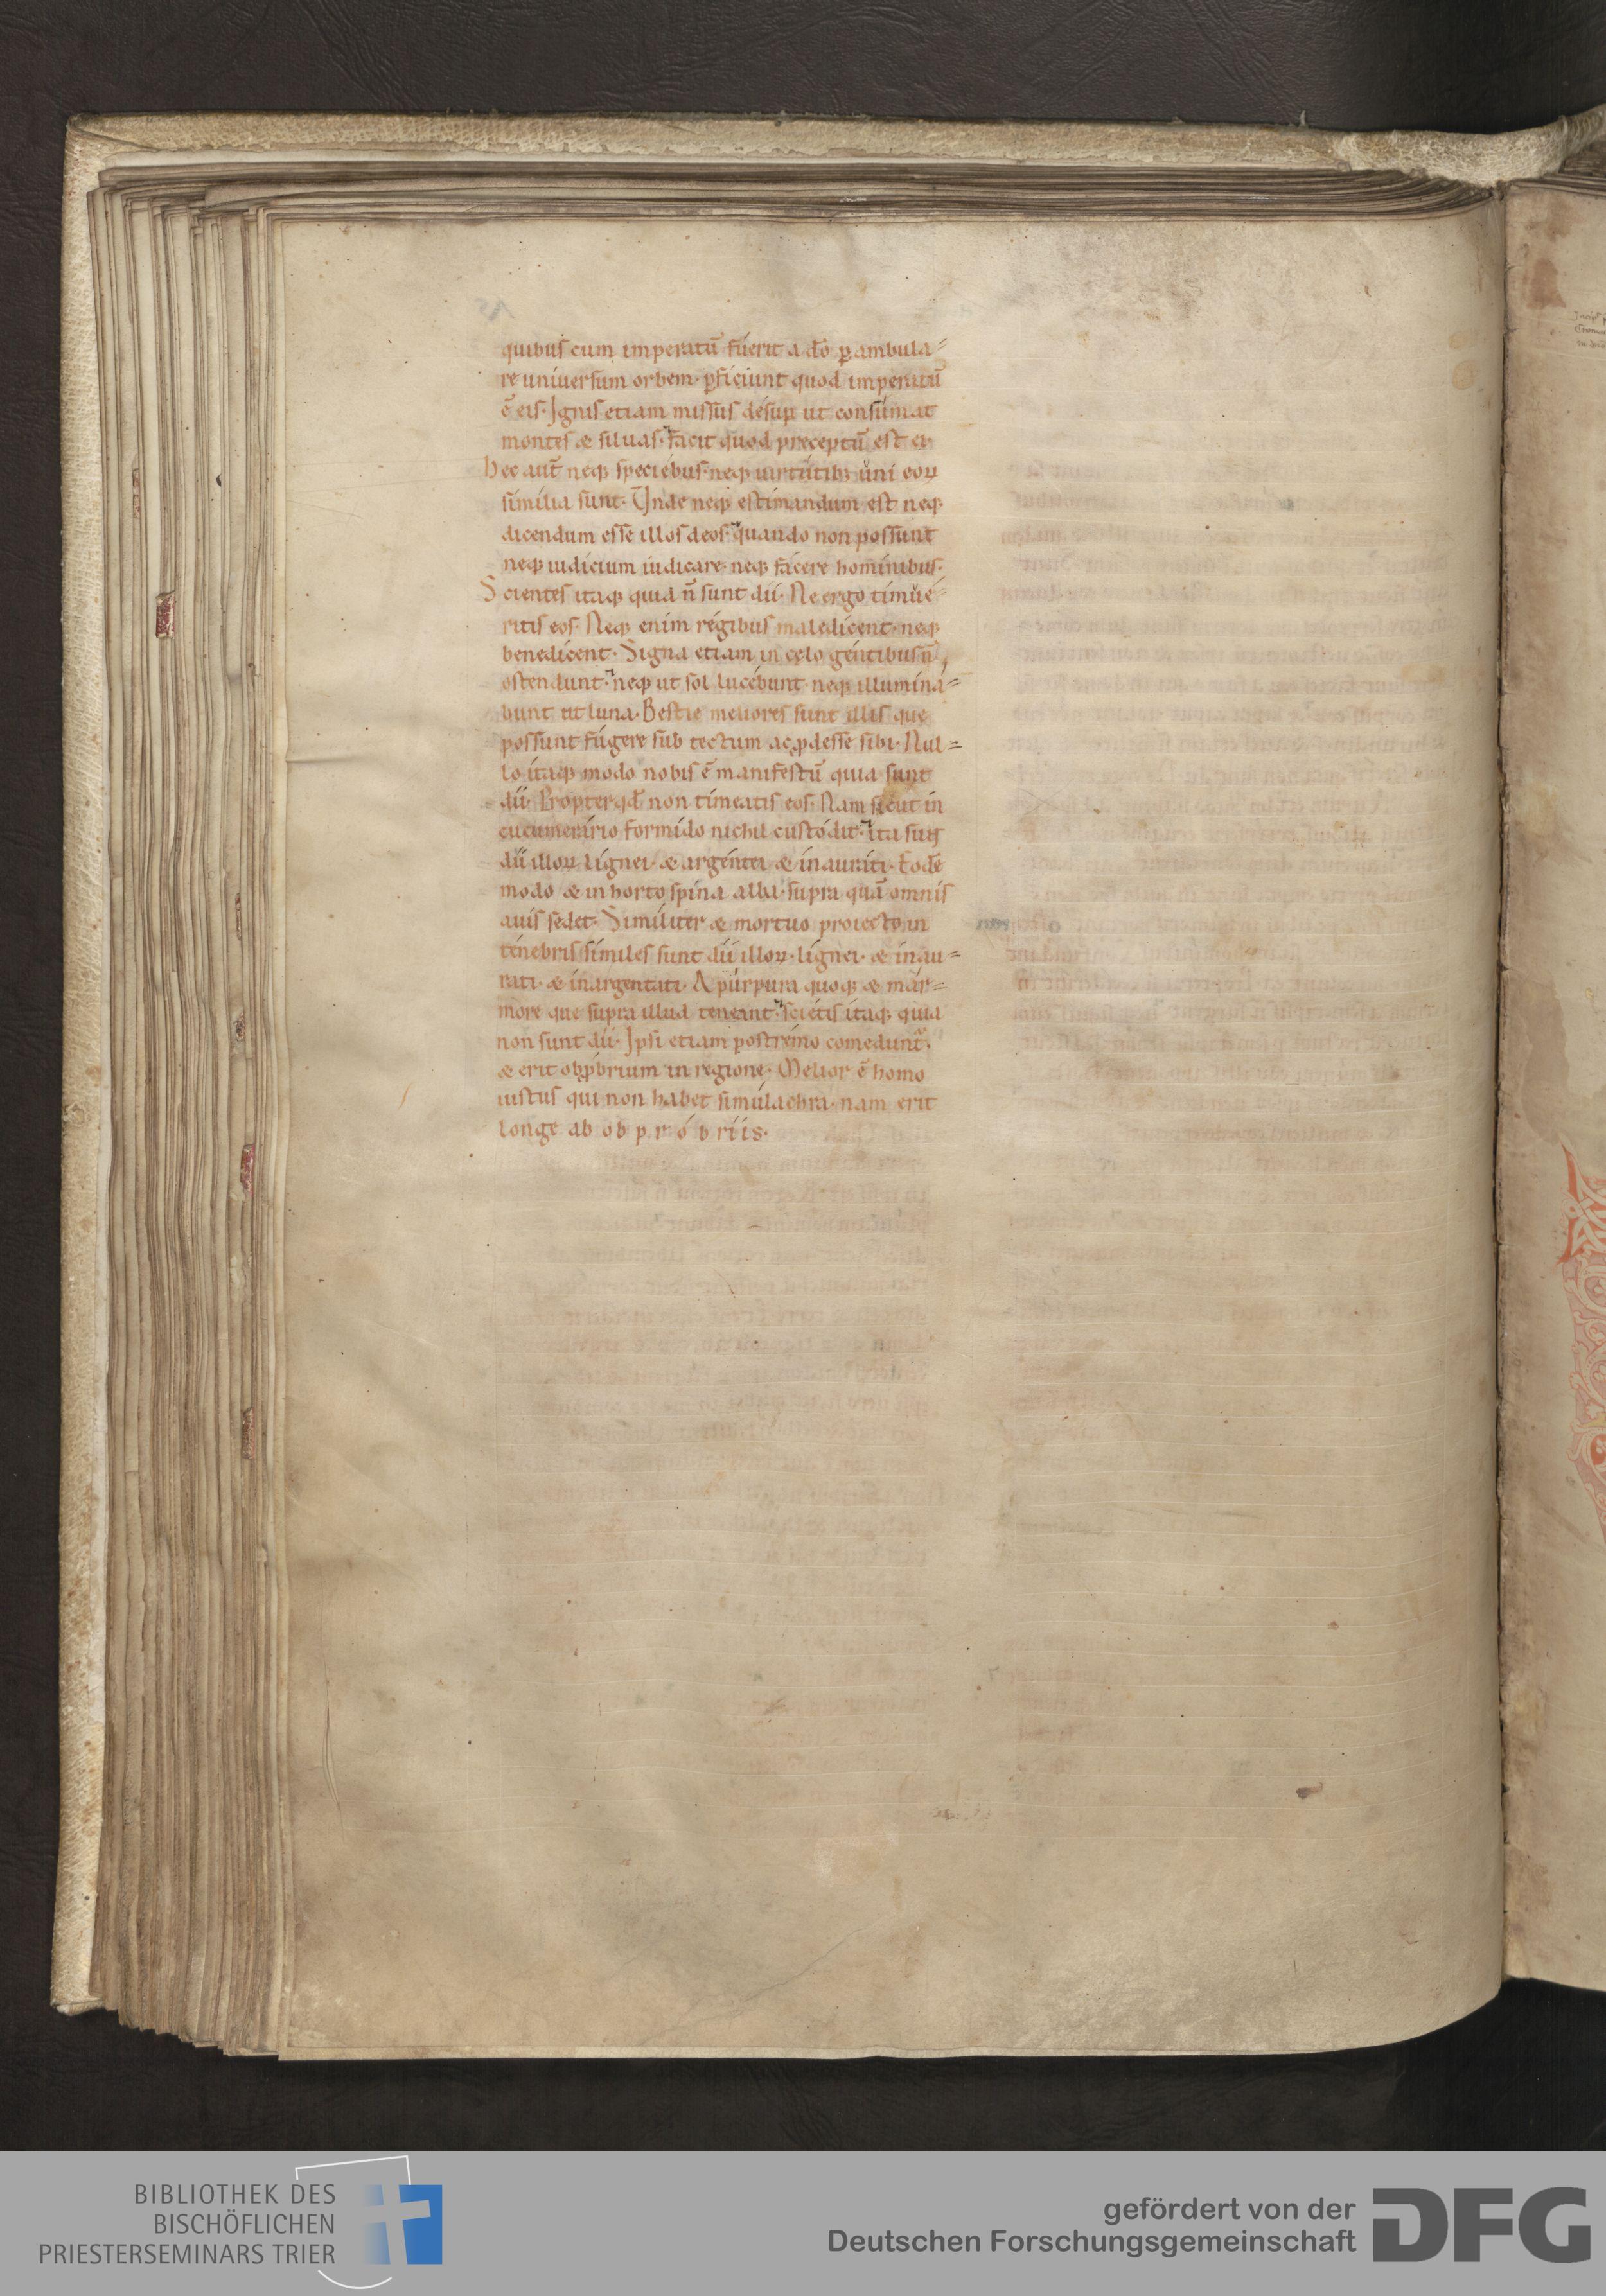 quibus cum imperatū fuerit a dō ꝑambula⸗
re universum orbem· ꝑficiunt quod imperatū
ē eis· Ignis etiam missus desuꝑ ut consumat
montes & siluas· facit quod preceptū est ei·
Hec aut̄ neq; speciebus· neq; uirtutib; uni eoꝝ
similia sunt· Unde neq; estimandum est neq;
dicendum esse illos deos· quando non possunt
neq; iudicium iudicare· neq; facere hominibus·
Scientes itaq; quia n̄ sunt dii· Ne ergo timue⸗
ritis eos· Neq; enim regibus maledicent· neq;
benedicent· Signa etiam in celo gentibus n̄
ostendunt· neq; ut sol lucebunt· neq; illumina⸗
bunt ut luna· Bestie meliores sunt illis que
possunt fugere sub tectum ac ꝓdesse sibi· Nul⸗
lo itaq; modo nobis ē manifestū quia sunt
dii· Propter qd̄ non timeatis eos· Nam sicut in
cucumerario formido nichil custodit· ita sunt
dii illoꝝ lignei· & argentei & inaurati· Eodē
modo & in horto spina alba· supra quā omnis
auis sedet· Similiter & mortuo proiecto in
tenebris similes sunt dii illoꝝ· lignei· & inau⸗
rati· & inargentati· A purpura quoq; & mar⸗
more que supra illud teneant· scietis itaq; quia
non sunt dii· Ipsi etiam postremo comedunt̄·
& erit obꝓbrium in regione· Melior ē homo
iustus qui non habet simulachra· nam erit
longe ab obprobriis·
BIBLIOTHEK DES
BISCHÖFLICHEN
PRIESTERSEMINARS TRIER
gefördert von der
Deutschen Forschungsgemeinschaft
DFG